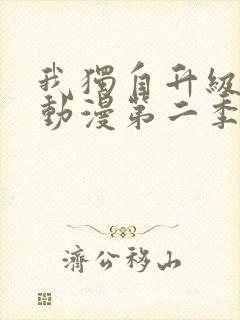 我獨自升級
動漫第二季
濟公移山